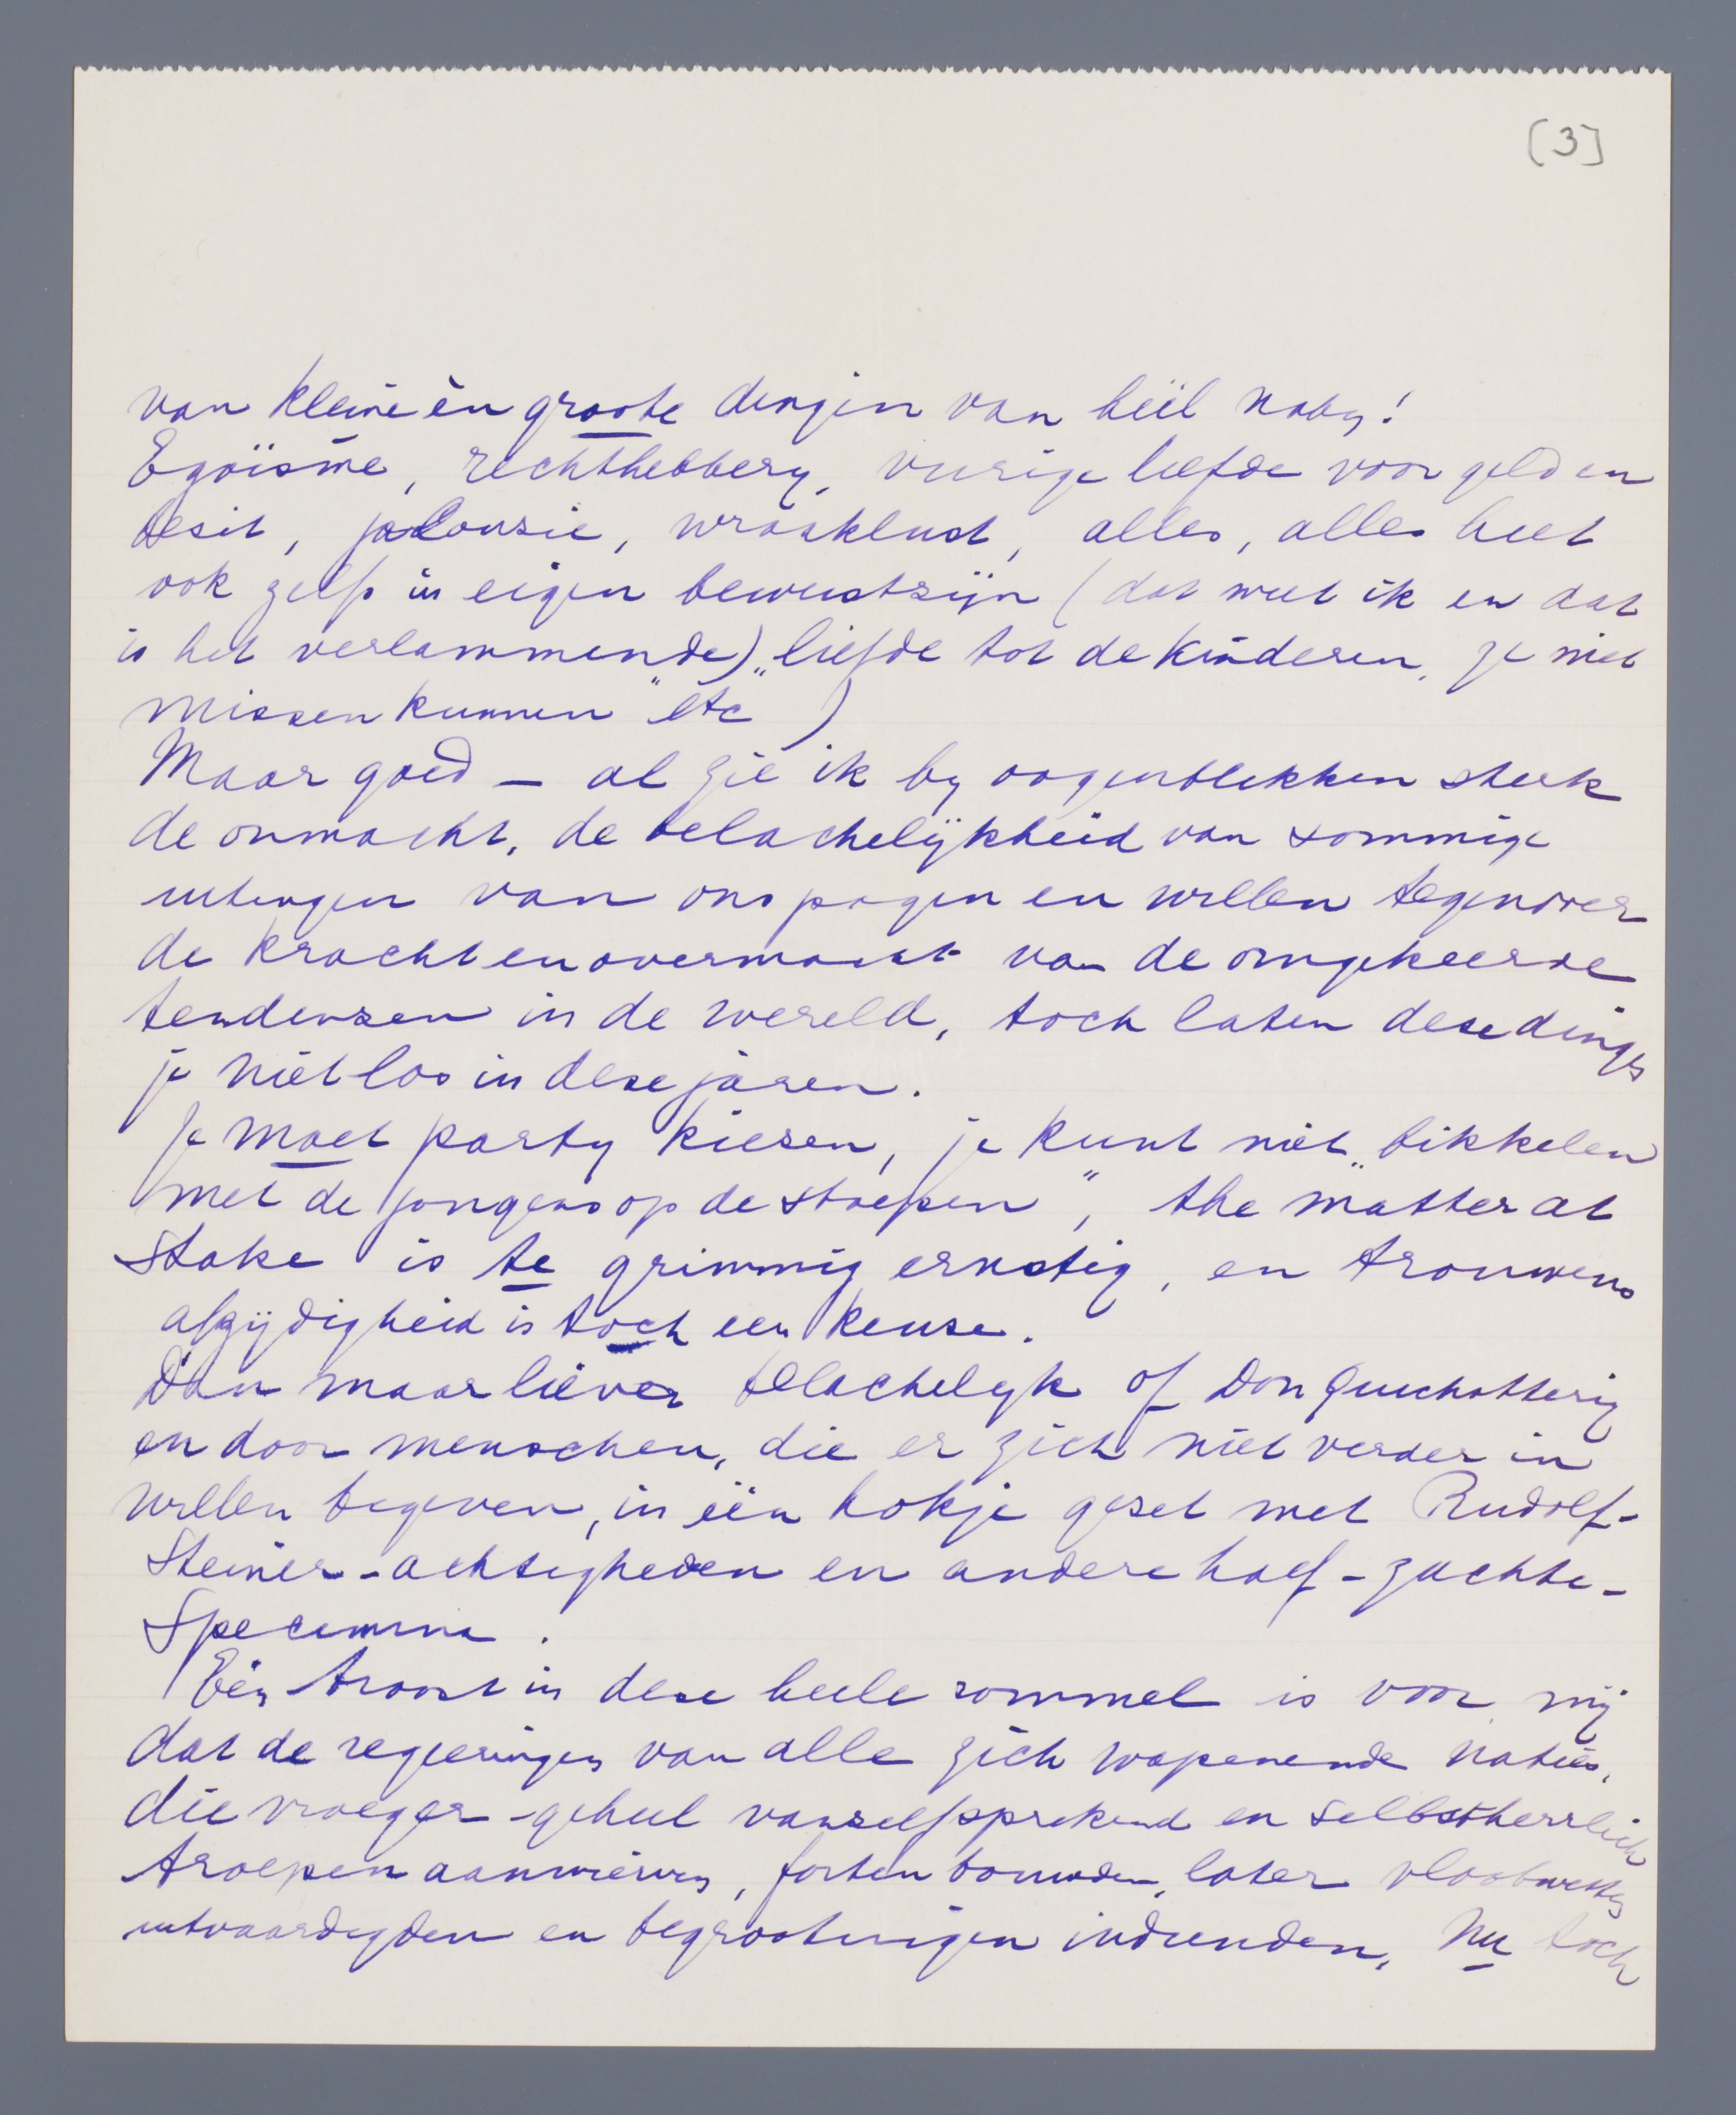 [3]
van kleine èn groote dingen van héél naby!
Egoïsme, rechthebbery, vurige liefde voor geld en
besit, jalousie, wraaklust, alles, alles heet
ook zelfs in eigen bewustzijn (dat weet ik en dat
is het verlammende) „liefde tot de kinderen, ze niet
missen kunnen" etc)
Maar goed — al zie ik by oogenblikken sterk
de onmacht, de belachelijkheid van sommige
uitingen van ons pogen en willen tegenover
de kracht en overmacht van de omgekeerde
tendensen in de wereld, toch laten dese dingen
je niet los in dese jaren.
Je moet party kiesen, je kunt niet „bikkelen
met de jongens op de stoepen", the matter at
stake is te grimmig ernstig, en trouwens
afzijdigheid is toch een keuse.
Dan maar liever belachelyk of Don Quichotterig
en door menschen, die er zich niet verder in
willen begeven, in één hokje geset met Rudolf-
Steiner-achtigheden en andere half-zachte-
specimina.
Eén troost in dese heele rommel is voor mij
dat de regeeringen van alle zich wapenende naties,
die vroeger geheel vanselfsprekend en selbstherrlich
troepen aanwierven, forten bouwden, later vlootwetten
uitvaardigden en begrootingen indienden, nu toch